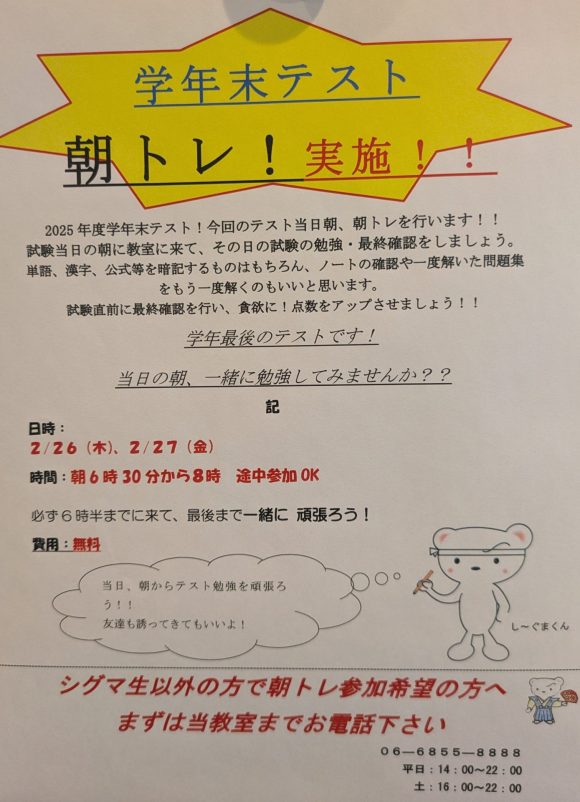 学年末テスト
朝トレ！実施！！
2025年度学年末テスト！今回のテスト当日朝、朝トレを行います！！
試験当日の朝に教室に来て、その日の試験の勉強・最終確認をしましょう。
単語、漢字、公式等を暗記するものはもちろん、ノートの確認や一度解いた問題集
をもう一度解くのもいいと思います。
試験直前に最終確認を行い、貪欲に！点数をアップさせましょう！！
学年最後のテストです！
当日の朝、一緒に勉強してみませんか？？
記
日時：
2/26（木）、2/27（金）
時間：朝6時30分から8時　途中参加OK
必ず6時半までに来て、最後まで一緒に 頑張ろう！
費用：無料
当日、朝からテスト勉強を頑張ろ
う！！
友達も誘ってきてもいいよ！
し～ぐまくん
シグマ生以外の方で朝トレ参加希望の方へ
まずは当教室までお電話下さい
０６―６８５５―８８８８
平日：14：00～22：00
土：16：00～22：00